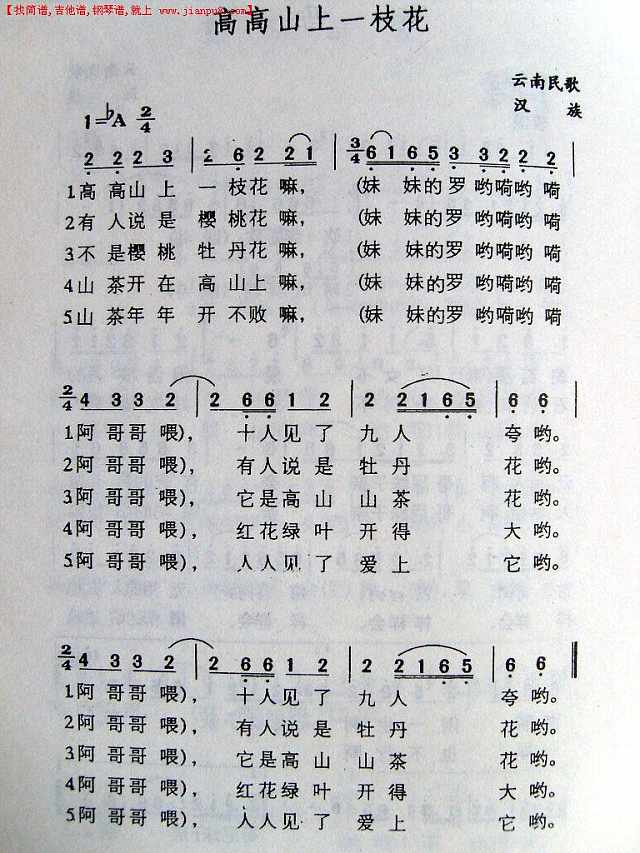 【找简谱,吉他谱,钢琴谱,就上 www.jianpu8.com】
高高山上一枝花
云南民歌
汉 族
1=♭A 2/4
2 2 2 3 2· 6 2 2 1 3/4 6 1 6 5 3 3 2 2 2
1高 高山 上 一枝花 嘛, (妹 妹的罗 哟嗬哟 嗬
2有 人说 是 樱桃花 嘛, (妹 妹的罗 哟嗬哟 嗬
3不 是樱 桃 牡丹花 嘛, (妹 妹的罗 哟嗬哟 嗬
4山 茶开 在 高山上 嘛, (妹 妹的罗 哟嗬哟 嗬
5山 茶年 年 开不败 嘛, (妹 妹的罗 哟嗬哟 嗬
2/4 4 3 3 2 2 6 6 1 2 2 2 1 6 5 6 6
1阿 哥哥 喂), 十人见了 九人 夸 哟。
2阿 哥哥 喂), 有人说是 牡丹 花 哟。
3阿 哥哥 喂), 它是高山 山茶 花 哟。
4阿 哥哥 喂), 红花绿叶 开得 大 哟。
5阿 哥哥 喂), 人人见了 爱上 它 哟。
2/4 4 3 3 2 2 6 6 1 2 2 2 1 6 5 6 6
1阿 哥哥 喂), 十人见了 九人 夸 哟。
2阿 哥哥 喂), 有人说是 牡丹 花 哟。
3阿 哥哥 喂), 它是高山 山茶 花 哟。
4阿 哥哥 喂), 红花绿叶 开得 大 哟。
5阿 哥哥 喂), 人人见了 爱上 它 哟。